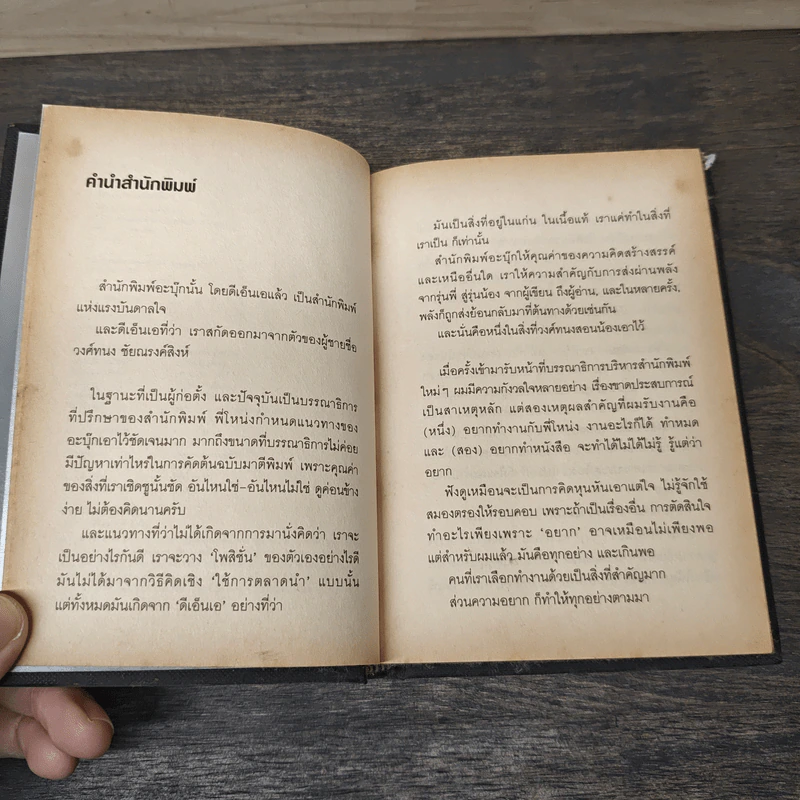 คำนำสำนักพิมพ์
สำนักพิมพ์อะบุ๊กนั้น โดยดีเอ็นเอแล้ว เป็นสำนักพิมพ์
แห่งแรงบันดาลใจ
และดีเอ็นเอที่ว่า เราสกัดออกมาจากตัวของผู้ชายชื่อ
วงศ์ทนง ชัยณรงค์สิงห์
ในฐานะที่เป็นผู้ก่อตั้ง และปัจจุบันเป็นบรรณาธิการ
ที่ปรึกษาของสำนักพิมพ์ พี่โหน่งกำหนดแนวทางของ
อะบุ๊กเอาไว้ชัดเจนมาก มากถึงขนาดที่บรรณาธิการไม่ค่อย
มีปัญหาเท่าไหร่ในการคัดต้นฉบับมาตีพิมพ์ เพราะคุณค่า
ของสิ่งที่เราเชิดชูนั้นชัด อันไหนใช่-อันไหนไม่ใช่ ดูค่อนข้าง
ง่าย ไม่ต้องคิดนานครับ
และแนวทางที่ว่าไม่ได้เกิดจากการมานั่งคิดว่า เราจะ
เป็นอย่างไรกันดี เราจะวาง ‘โพสิชั่น’ ของตัวเองอย่างไรดี
มันไม่ได้มาจากวิธีคิดเชิง ‘ใช้การตลาดนำ’ แบบนั้น
แต่ทั้งหมดมันเกิดจาก ‘ดีเอ็นเอ’ อย่างที่ว่า
มันเป็นสิ่งที่อยู่ในแก่น ในเนื้อแท้ เราแค่ทำในสิ่งที่
เราเป็น ก็เท่านั้น
สำนักพิมพ์อะบุ๊กให้คุณค่าของความคิดสร้างสรรค์
และเหนืออื่นใด เราให้ความสำคัญกับการส่งผ่านพลัง
จากรุ่นพี่ สู่รุ่นน้อง จากผู้เขียน ถึงผู้อ่าน, และในหลายครั้ง,
พลังก็ถูกส่งย้อนกลับมาที่ต้นทางด้วยเช่นกัน
และนั่นคือหนึ่งในสิ่งที่วงศ์ทนงสอนน้องเอาไว้
เมื่อครั้งเข้ามารับหน้าที่บรรณาธิการบริหารสำนักพิมพ์
ใหม่ๆ ผมมีความกังวลใจหลายอย่าง เรื่องขาดประสบการณ์
เป็นสาเหตุหลัก แต่สองเหตุผลสำคัญที่ผมรับงานคือ
(หนึ่ง) อยากทำงานกับพี่โหน่ง งานอะไรก็ได้ ทำหมด
และ (สอง) อยากทำหนังสือ จะทำได้ไม่ได้ไม่รู้ รู้แต่ว่า
อยาก
ฟังดูเหมือนจะเป็นการคิดหุนหันเอาแต่ใจ ไม่รู้จักใช้
สมองตรองให้รอบคอบ เพราะถ้าเป็นเรื่องอื่น การตัดสินใจ
ทำอะไรเพียงเพราะ ‘อยาก’ อาจเหมือนไม่เพียงพอ
แต่สำหรับผมแล้ว มันคือทุกอย่าง และเกินพอ
คนที่เราเลือกทำงานด้วยเป็นสิ่งที่สำคัญมาก
ส่วนความอยาก ก็ทำให้ทุกอย่างตามมา